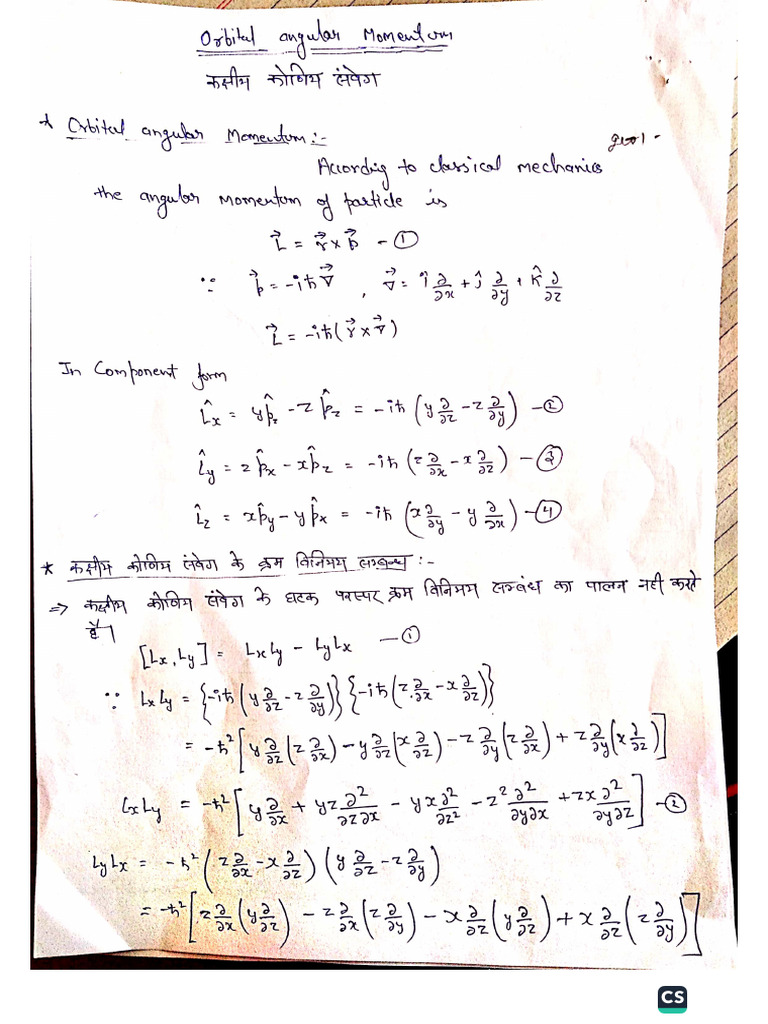 Orbital angular Momentum
कक्षीय कोणिय संवेग
* Orbital angular Momentum:-
According to classical mechanics
the angular momentum of particle is
L⃗ = r⃗ × p⃗ - ①
∵ p⃗ = -iħ∇⃗ , ∇⃗ = î ∂/∂x + ĵ ∂/∂y + k̂ ∂/∂z
L⃗ = -iħ(r⃗ × ∇⃗)
In Component form
L̂x = yp̂z - zp̂z = -iħ (y ∂/∂z - z ∂/∂y) - ②
L̂y = zp̂x - xp̂z = -iħ (z ∂/∂x - x ∂/∂z) - ③
L̂z = xp̂y - yp̂x = -iħ (x ∂/∂y - y ∂/∂x) - ④
* कक्षीय कोणिय संवेग के क्रम विनिमय सम्बन्ध :-
⇒ कक्षीय कोणिय संवेग के घटक परस्पर क्रम विनिमय सम्बंध का पालन नही करते
है।
[Lx, Ly] = LxLy - LyLx - ①
∵ LxLy = {-iħ (y ∂/∂z - z ∂/∂y)} {-iħ (z ∂/∂x - x ∂/∂z)}
= -ħ² [y ∂/∂z (z ∂/∂x) - y ∂/∂z (x ∂/∂z) - z ∂/∂y (z ∂/∂x) + z ∂/∂y (x ∂/∂z)]
LxLy = -ħ² [y ∂/∂x + yz ∂²/∂z∂x - yx ∂²/∂z² - z² ∂²/∂y∂x + zx ∂²/∂y∂z] - ②
LyLx = -ħ² (z ∂/∂x - x ∂/∂z) (y ∂/∂z - z ∂/∂y)
= -ħ² [z ∂/∂x (y ∂/∂z) - z ∂/∂x (z ∂/∂y) - x ∂/∂z (y ∂/∂z) + x ∂/∂z (z ∂/∂y)]
CS